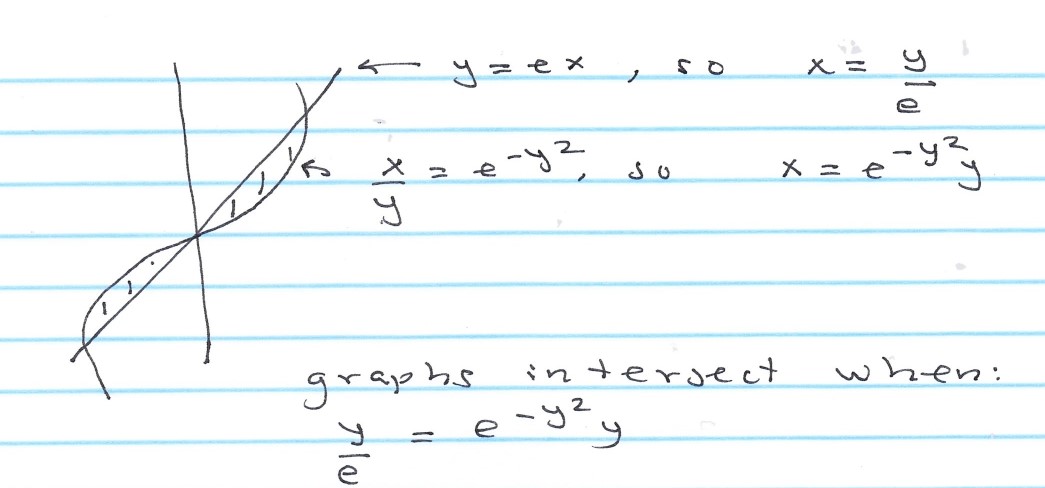 ← y = ex , so x = y/e
x/y = e^{-y^2}, so x = e^{-y^2}y
graphs intersect when:
y/e = e^{-y^2}y